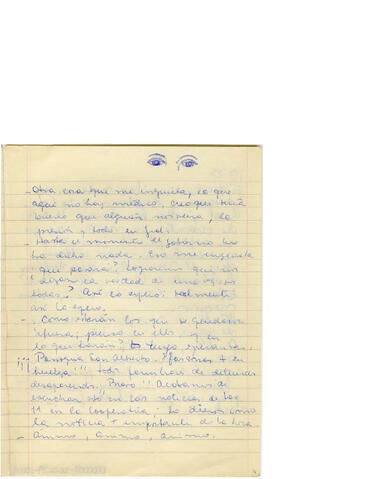 - Otra cosa que me inquieta, es que
aquí no hay médico, creo que sería
bueno que alguien nos viera, la
presión y todo en gral.
- Hasta el momento el gobierno no
ha dicho nada. Eso me inquieta
qué pasará? Lograremos que nos
digan la verdad de una vez
todas? Así lo espero; realmente
así lo espero.
- Cómo estarán los que se quedaron
afuera; pienso en ellos y en
lo que harán? tengo esperanzas.
¡¡¡ Parroquia San Alberto - personas + en
huelga!!! todos familiares de detenidos
desaparecidos. Bravo!! Acabamos de
escuchar en las noticias de las
11 en la Cooperativa; lo dieron como
la noticia + importante de la hora
- ánimo, ánimo, ánimo.